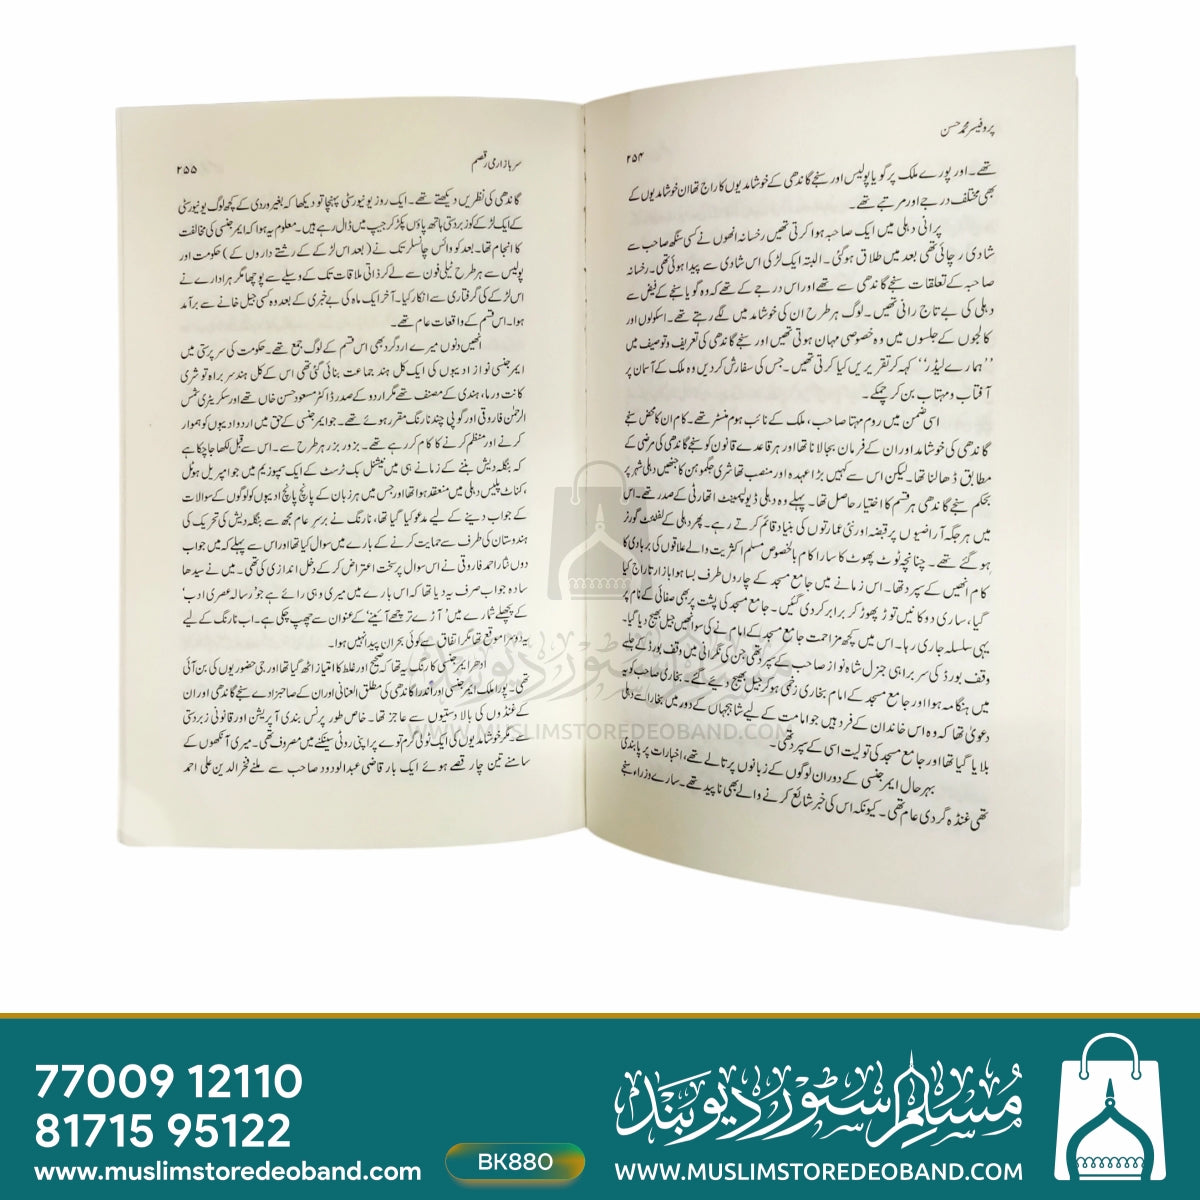 پروفیسر محمد حسن
۲۵۴
تھے۔ اور پورے ملک پر گویا پولیس اور سنجے گاندھی کے خوشامدیوں کا راج تھا ان خوشامدیوں کے
بھی مختلف درجے اور مرتبے تھے۔
پرانی دہلی میں ایک صاحبہ ہوا کرتی تھیں رخسانہ انھوں نے کسی سنگھ صاحب سے
شادی رچائی تھی بعد میں طلاق ہوگئی۔ البتہ ایک لڑکی اس شادی سے پیدا ہوئی تھی۔ رخسانہ
صاحبہ کے تعلقات سنجے گاندھی سے تھے اور اس درجے کے تھے کہ وہ گویا سنجے کے فیض سے
دہلی کی بے تاج رانی تھیں۔ لوگ ہر طرح ان کی خوشامد میں لگے رہتے تھے۔ اسکولوں اور
کالجوں کے جلسوں میں وہ خصوصی مہمان ہوتی تھیں اور سنجے گاندھی کی تعریف و توصیف میں
''ہمارے لیڈر'' کہہ کر تقریریں کیا کرتی تھیں۔ جس کی سفارش کر دیں وہ ملک کے آسمان پر
آفتاب و مہتاب بن کر چمکے۔
اسی ضمن میں روم مہتا صاحب، ملک کے نائب ہوم منسٹر تھے۔ کام ان کا محض سنجے
گاندھی کی خوشامد اور ان کے فرمان بجا لانا تھا اور ہر قاعدے قانون کو سنجے گاندھی کی مرضی کے
مطابق ڈھالنا تھا۔ لیکن اس سے کہیں بڑا عہدہ اور منصب تھا شری جگموہن کا جنھیں دہلی شہر پر
بحکم سنجے گاندھی ہر قسم کا اختیار حاصل تھا۔ پہلے وہ دہلی ڈیولپمنٹ اتھارٹی کے صدر تھے۔ اس
میں ہر جگہ آراضیوں پر قبضہ اور نئی عمارتوں کی بنیاد قائم کرتے رہے۔ پھر دہلی کے لفٹنٹ گورنر
ہو گئے تھے۔ چنانچہ ٹوٹ پھوٹ کا سارا کام بالخصوص مسلم اکثریت والے علاقوں کی بربادی کا
کام انھیں کے سپرد تھا۔ اس زمانے میں جامع مسجد کے چاروں طرف بسا ہوا بازار تاراج کیا
گیا، ساری دوکانیں توڑ پھوڑ کر برابر کر دی گئیں۔ جامع مسجد کی پشت پر بھی صفائی کے نام پر
یہی سلسلہ جاری رہا۔ اس میں کچھ مزاحمت جامع مسجد کے امام نے کی سو انھیں جیل بھیج دیا گیا۔
وقف بورڈ کی سربراہی جنرل شاہ نواز صاحب کے سپرد تھی جن کی نگرانی میں وقف بورڈ کے جلسے
میں ہنگامہ ہوا اور جامع مسجد کے امام بخاری زخمی ہوکر جیل بھیج دیئے گئے۔ بخاری صاحب کو یہ
دعویٰ تھا کہ وہ اس خاندان کے فرد ہیں جو امامت کے لیے شاہجہاں کے دور میں بخارا سے دہلی
بلایا گیا تھا اور جامع مسجد کی تولیت اسی کے سپرد تھی۔
بہرحال ایمرجنسی کے دوران لوگوں کے زبانوں پر تالے تھے، اخبارات پر پابندی
تھی غنڈہ گردی عام تھی۔ کیونکہ اس کی خبر شائع کرنے والے بھی ناپید تھے۔ سارے وزراء سنجے
سر بازار می رقصم
۲۵۵
گاندھی کی نظریں دیکھتے تھے۔ ایک روز یونیورسٹی پہنچا تو دیکھا کہ بغیر وردی کے کچھ لوگ یونیورسٹی
کے ایک لڑکے کو زبردستی ہاتھ پاؤں پکڑ کر جیپ میں ڈال رہے ہیں۔ معلوم یہ ہوا کہ ایمرجنسی کی مخالفت
کا انجام تھا۔ بعد کو وائس چانسلر تک نے (بعد اس لڑکے کے رشتے داروں کے) حکومت اور
پولیس سے ہر طرح ٹیلی فون سے لے کر ذاتی ملاقات تک کے وسیلے سے پوچھا مگر ہر ادارے نے
اس لڑکے کی گرفتاری سے انکار کیا۔ آخر ایک ماہ کی بے خبری کے بعد وہ کسی جیل خانے سے برآمد
ہوا۔ اس قسم کے واقعات عام تھے۔
انھیں دنوں میرے اردگرد بھی اس قسم کے لوگ جمع تھے۔ حکومت کی سرپرستی میں
ایمرجنسی نواز ادیبوں کی ایک کل ہند جماعت بنائی گئی تھی اس کے کل ہند سربراہ تو شری
کانت ورما، ہندی کے مصنف تھے مگر اردو کے صدر ڈاکٹر مسعود حسن خاں تھے اور سکریٹری شمس
الرحمٰن فاروقی اور گوپی چند نارنگ مقرر ہوئے تھے۔ جو ایمرجنسی کے حق میں اردو ادیبوں کو ہموار
کرنے اور منظم کرنے کا کام کر رہے تھے۔ بزور بزر ہر طرح سے۔ اس سے قبل لکھا جا چکا ہے
کہ بنگلہ دیش بننے کے زمانے ہی میں نیشنل بک ٹرسٹ کے ایک سمپوزیم میں جو امپریل ہوٹل
، کناٹ پلیس دہلی میں منعقد ہوا تھا اور جس میں ہر زبان کے پانچ پانچ ادیبوں کو لوگوں کے سوالات
کے جواب دینے کے لیے مدعو کیا گیا تھا، نارنگ نے برسر عام مجھ سے بنگلہ دیش کی تحریک کی
ہندوستان کی طرف سے حمایت کرنے کے بارے میں سوال کیا تھا اور اس سے پہلے کہ میں جواب
دوں نثار احمد فاروقی نے اس سوال پر سخت اعتراض کر کے دخل اندازی کی تھی۔ میں نے سیدھا
سادہ جواب صرف یہ دیا تھا کہ اس بارے میں میری وہی رائے ہے جو 'رسالہ عصری ادب'
کے پچھلے شمارے میں 'آڑے ترچھے آئینے' کے عنوان سے چھپ چکی ہے۔ اب نارنگ کے لیے
یہ دوسرا موقع تھا مگر اتفاق سے کوئی بحران پیدا نہیں ہوا۔
ادھر ایمرجنسی کا رنگ یہ تھا کہ صحیح اور غلط کا امتیاز اٹھ گیا تھا اور جی حضوریوں کی بن آئی
تھی۔ پورا ملک ایمرجنسی اور اندرا گاندھی کی مطلق العنانی اور ان کے صاحبزادے سنجے گاندھی اور ان
کے غنڈوں کی بالا دستیوں سے عاجز تھا۔ خاص طور پر نس بندی آپریشن اور قانونی زبردستی
سے۔ مگر خوشامدیوں کی ایک ٹولی گرم توے پر اپنی روٹی سینکنے میں مصروف تھی۔ میری آنکھوں کے
سامنے تین چار قصے ہوئے ایک بار قاضی عبدالودود صاحب سے ملنے فخرالدین علی احمد
مسلم سٹور دیوبند
WWW.MUSLIMSTOREDEOBAND.COM
77009 12110
81715 95122
www.muslimstoredeoband.com
BK880
مسلم سٹور دیوبند
WWW.MUSLIMSTOREDEOBAND.COM